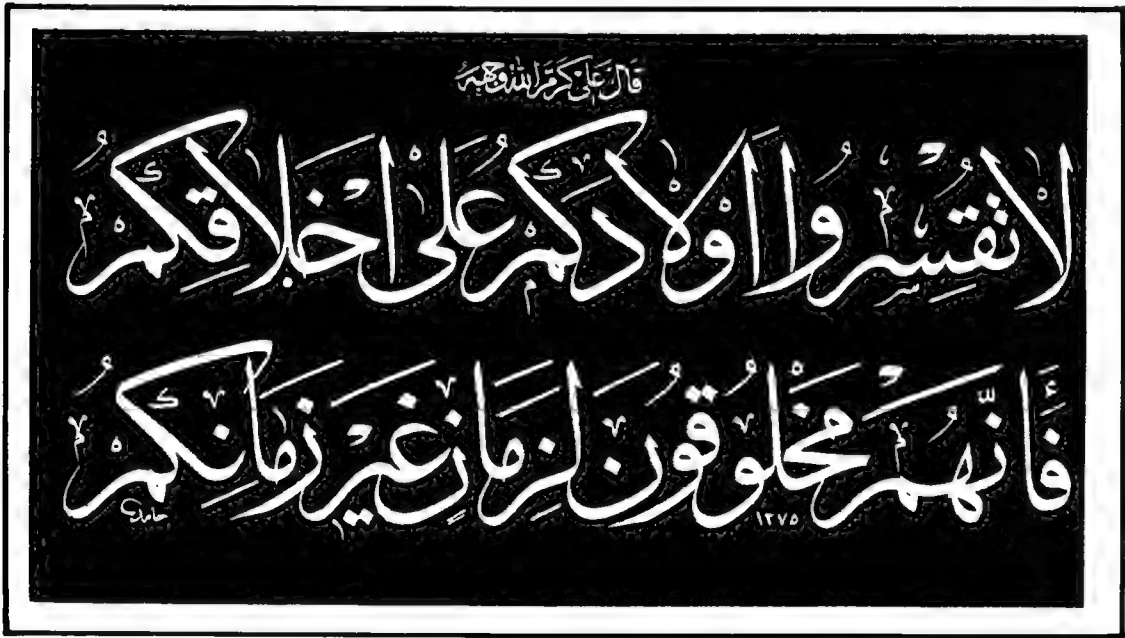 قال علي كرم الله وجهه
لا تقسروا أولادكم على أخلاقكم
فأنهم مخلوقون لزمان غير زمانكم
١٣٧٥
حامد